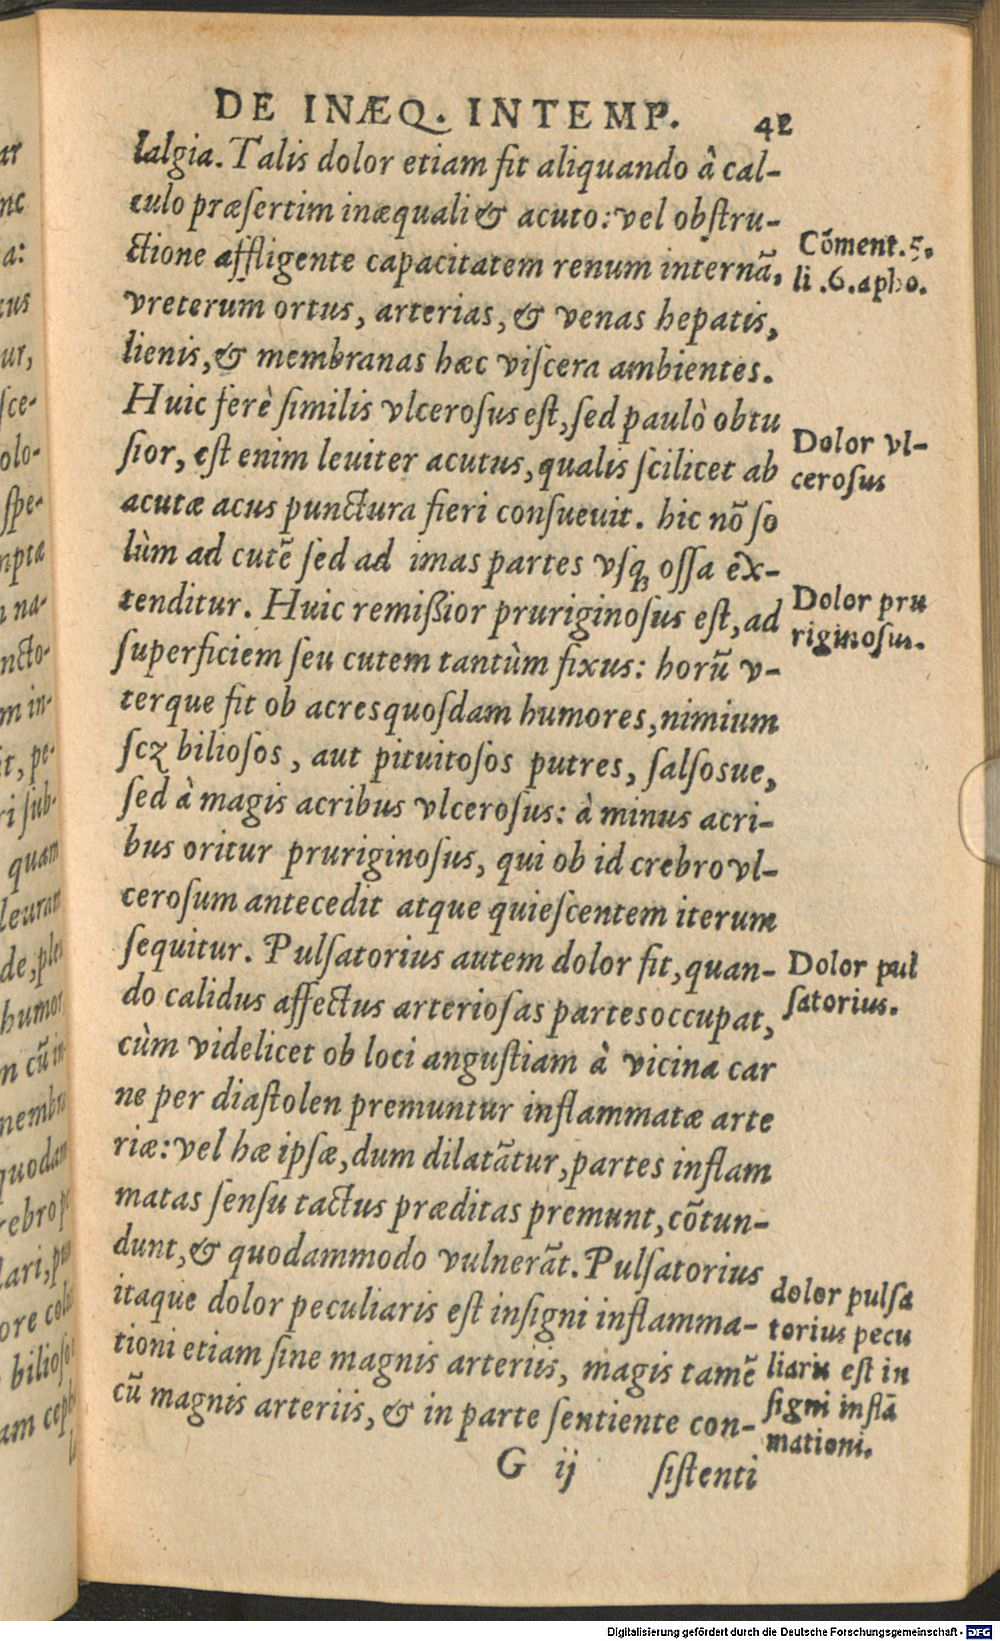 DE INÆQ. INTEMP. 42
lalgia. Talis dolor etiam fit aliquando â cal-
culo præſertim inæquali & acuto: vel obſtru-
ctione affligente capacitatem renum internã,
vreterum ortus, arterias, & venas hepatis,
lienis, & membranas hæc viſcera ambientes.
Huic ferè ſimilis vlceroſus eſt, ſed paulò obtu
ſior, eſt enim leuiter acutus, qualis ſcilicet ab
acutæ acus punctura fieri conſueuit. hic nõ ſo
lùm ad cutẽ ſed ad imas partes vſq; oſſa ex-
tenditur. Huic remißior pruriginoſus eſt, ad
ſuperficiem ſeu cutem tantùm fixus: horũ v-
terque fit ob acres quoſdam humores, nimium
ſcz bilioſos, aut pituitoſos putres, ſalſosue,
ſed à magis acribus vlceroſus: à minus acri-
bus oritur pruriginoſus, qui ob id crebro vl-
ceroſum antecedit atque quieſcentem iterum
ſequitur. Pulſatorius autem dolor fit, quan-
do calidus affectus arterioſas partes occupat,
cùm videlicet ob loci anguſtiam à vicina car
ne per diaſtolen premuntur inflammatæ arte
riæ: vel hæ ipſæ, dum dilatãtur, partes inflam
matas ſenſu tactus præditas premunt, cõtun-
dunt, & quodammodo vulnerãt. Pulſatorius
itaque dolor peculiaris eſt inſigni inflamma-
tioni etiam ſine magnis arteriis, magis tamẽ
cũ magnis arteriis, & in parte ſentiente con-
G ij ſiſtenti
Cõment. 5.
li .6. apho.
Dolor vl-
ceroſus
Dolor pru
riginoſus.
Dolor pul
ſatorius.
dolor pulſa
torius pecu
liaris eſt in
ſigni inflã
mationi.
ar
nc
a:
ur,
ſce-
olo-
ſpe-
mptæ
n na-
ncto-
m in-
it, pe-
ri ſub-
quam
leuram
de, ple
humor
n cũ in
membra
quodam
rebro p
lari, pun
ore
bilioſo
am
Digitalisierung gefördert durch die Deutsche Forschungsgemeinschaft - DFG